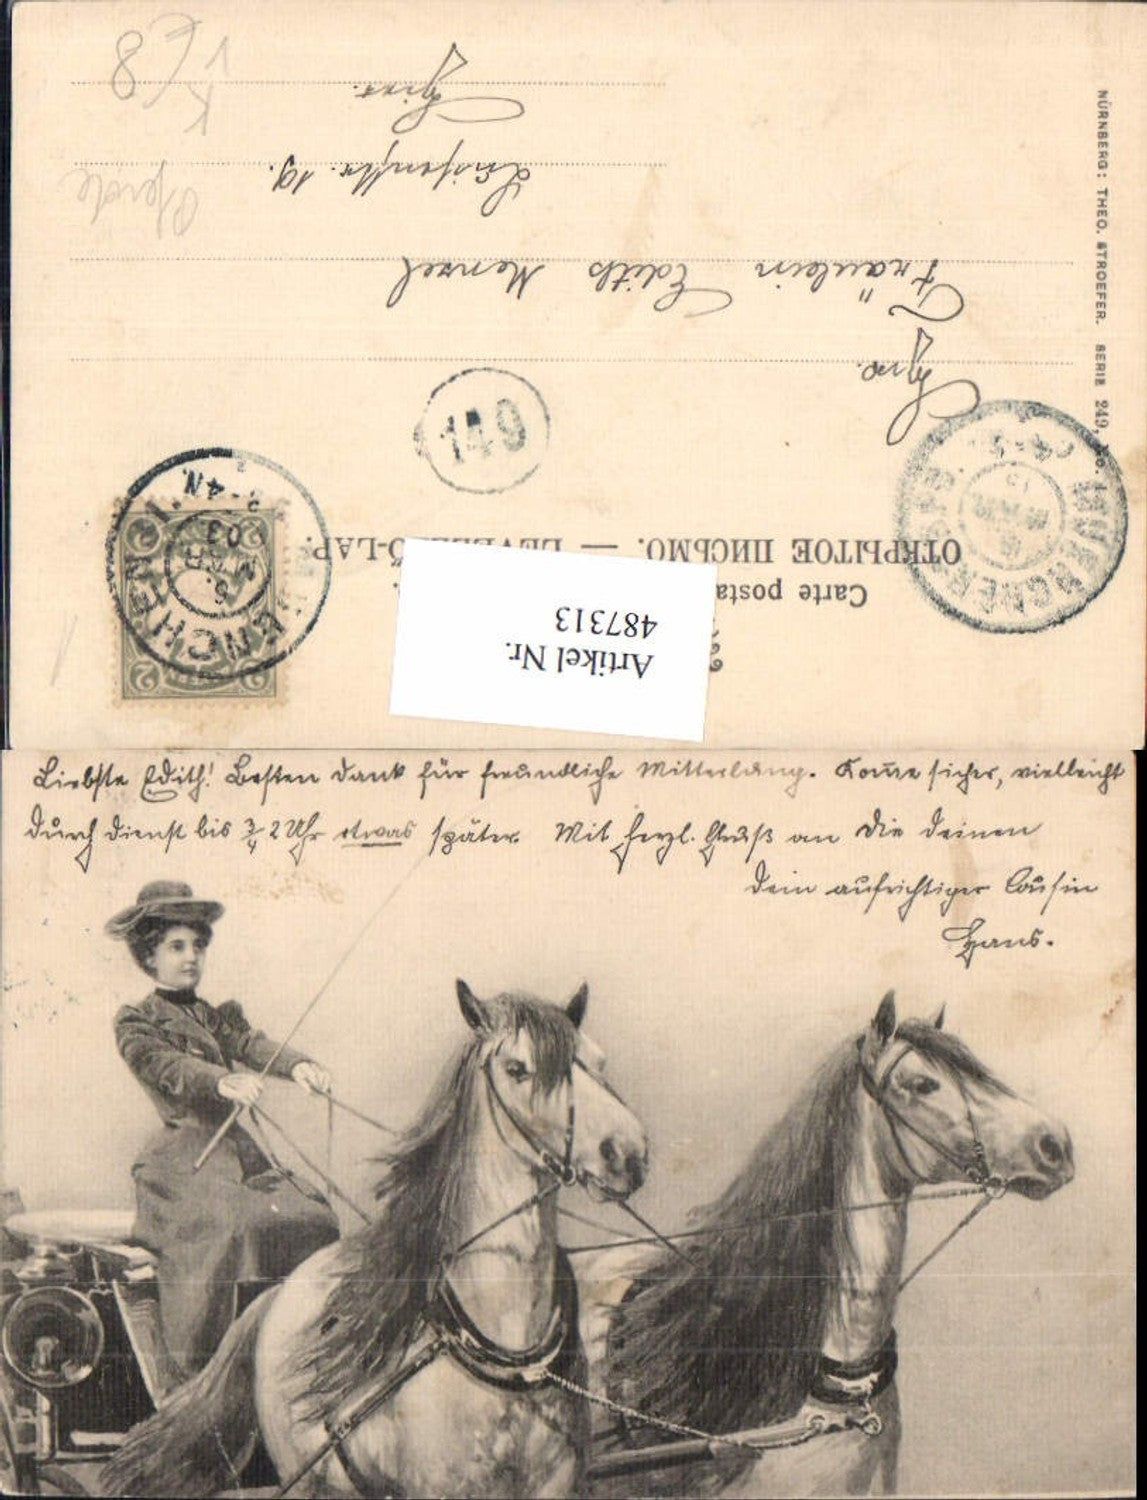 NÜRNBERG: THEO. STROEFER. SERIE 249, No. 1
Carte posta
ОТКРЫТОЕ ПИСЬМО. — LEVELEZŐ-LAP.
Artikel Nr.
487313
149
MÜNCHEN
6. MAR
03
3-4 N.
2
Fräulein Edith Menzel
Luisenstr. 19.
hier.
Pferde
Liebste Edith! Besten Dank für freundliche Mitteilung. Kom̄e sicher, vielleicht
durch Dienst bis 3/4 2 Uhr etwas später. Mit herzl. Gruß an die Deinen
Dein aufrichtiger Cousin
Hans.